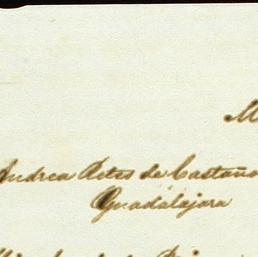 M
Andrea Retes de Castaño
Guadalajara